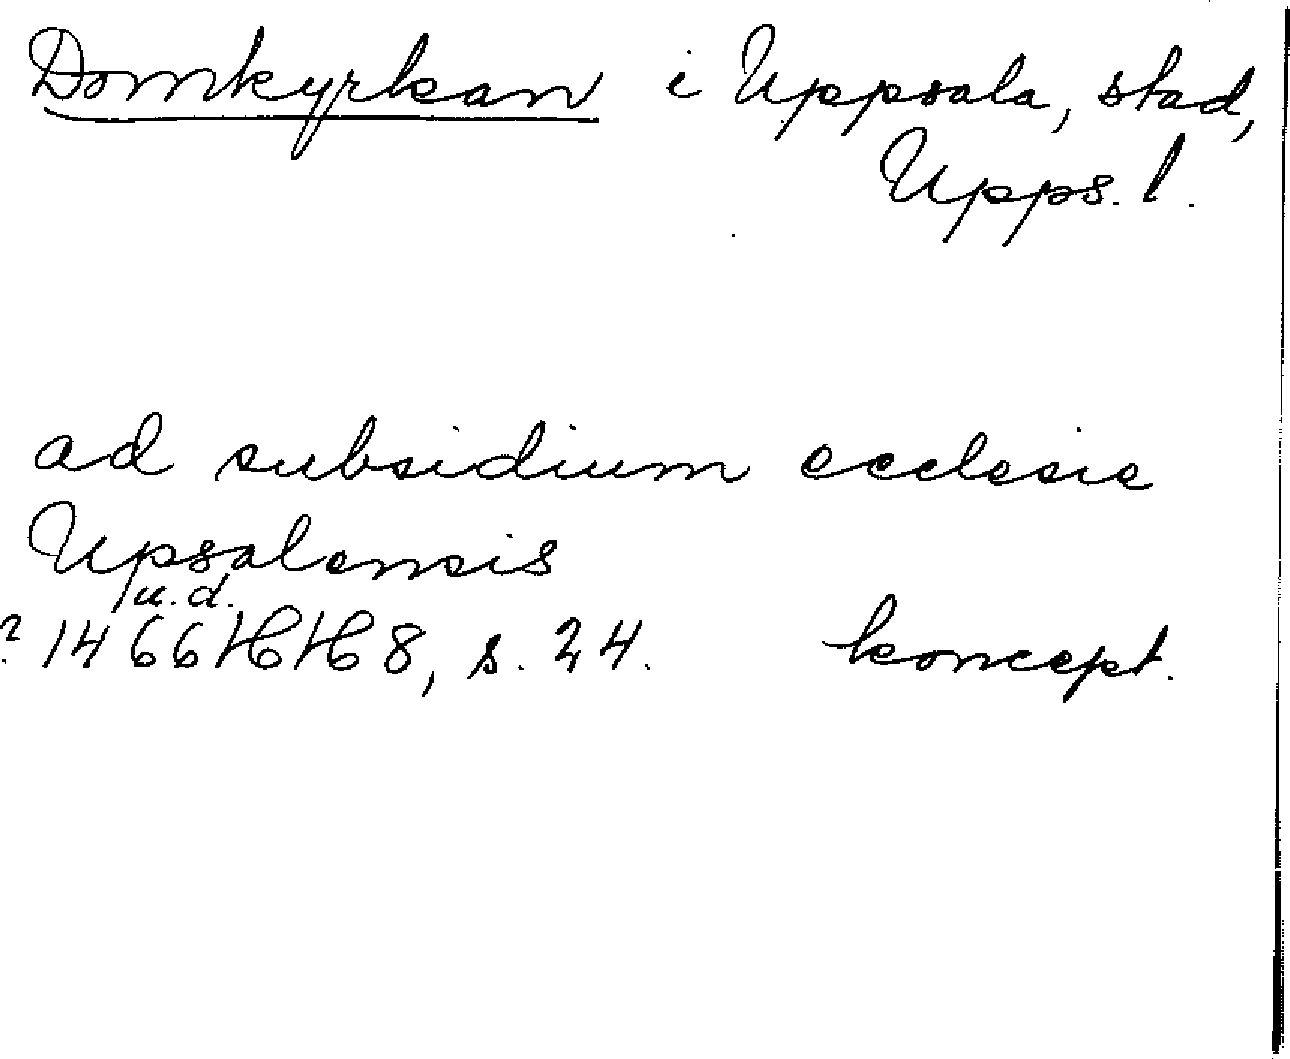 Domkyrkan i Uppsala, stad,
Upps. l.
ad subsidium ecclesie
Upsalensis
u.d.
? 1466 HH 8, s. 24. koncept.